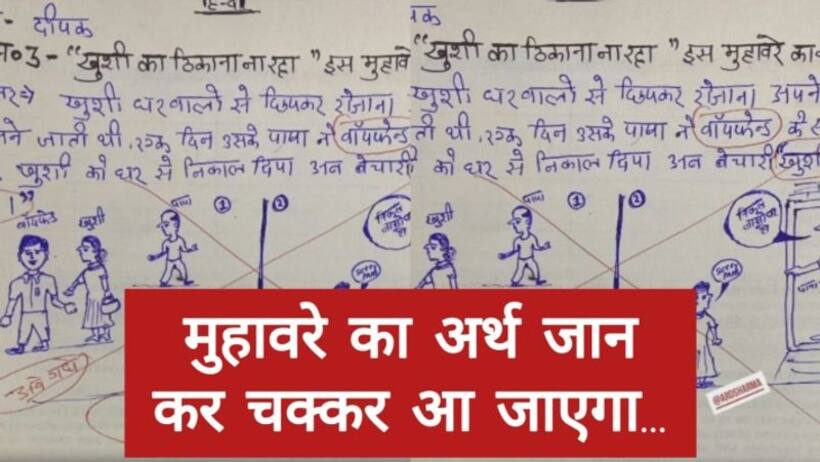 हिन्दी
दीपक
"खुशी का ठिकाना ना रहा" इस मुहाव
खुशी घरवालो से छिपकर रोजाना
ने जाती थी, एक दिन उसके पापा ने बॉयफेन्ड
खुशी को घर से निकाल दिया अब बेचारी
बॉयफेंड खुशी पापा 1 2
"खुशी का ठिकाना ना रहा" इस मुहावरे का
खुशी घरवालो से छिपकर रोजाना अपने
ती थी, एक दिन उसके पापा ने बॉयफेन्ड के
को घर से निकाल दिया अब बेचारी "खुशी
खुशी पापा 1 2
पापा
मुहावरे का अर्थ जान
कर चक्कर आ जाएगा...
@ARDSHARMA